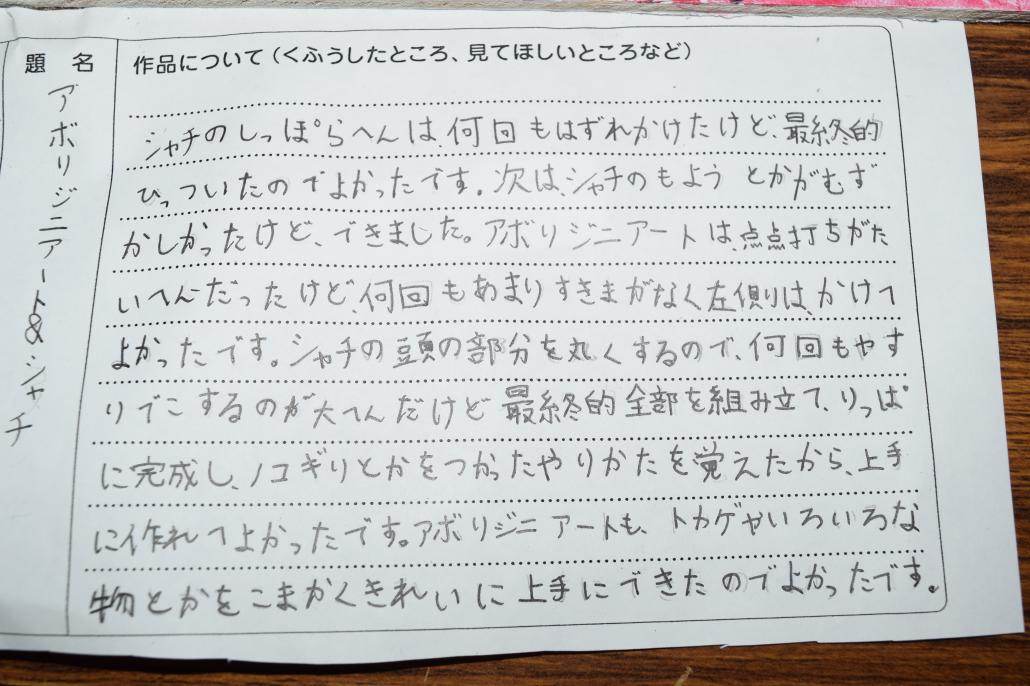 題名
アボリジニアート&シャチ
作品について(くふうしたところ、見てほしいところなど)
シャチのしっぽらへんは、何回もはずれかけたけど、最終的
ひっついたのでよかったです。次は、シャチのもようとかがむず
かしかったけど、できました。アボリジニアートは、点点打ちがた
いへんだったけど、何回もあまりすきまがなく左側は、かけて
よかったです。シャチの頭の部分を丸くするので、何回もやす
りでこするのが大へんだけど最終的全部を組み立て、りっぱ
に完成し、ノコギリとかをつかったやりかたを覚えたから、上手
に作れてよかったです。アボリジニアートも、トカゲやいろいろな
物とかをこまかくきれいに上手にできたのでよかったです。